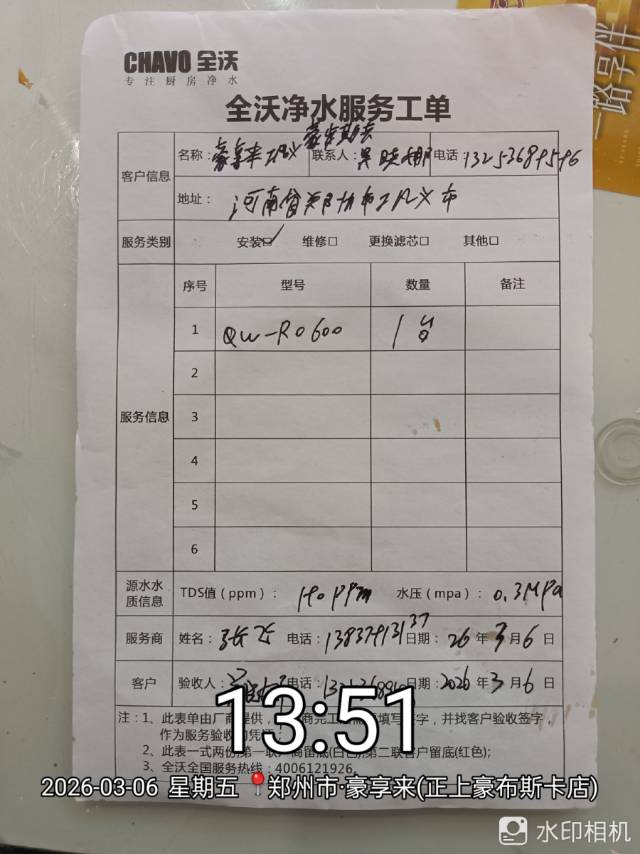 CHAVO 全沃
专注厨房净水
全沃净水服务工单
客户信息
名称: 豪享来 联系人: 电话
地址: 河南省郑州市巩义市
服务类别 安装☑ 维修□ 更换滤芯□ 其他□
服务信息
序号 型号 数量 备注
1 QW-R0600 1台
2
3
4
5
6
源水水质信息 TDS值(ppm): 140 PPM 水压(mpa): 0.3MPa
服务商 姓名: 电话: 日期: 26 年 3 月 6 日
客户 验收人: 电话: 日期: 2026 年 3 月 6 日
注: 1、此表单由厂商提供, 商完工 填写 字, 并找客户验收签字,
作为服务验收的凭证;
2、此表一式两份 第一联 商留底(白色) 第二联客户留底(红色);
3、全沃全国服务热线: 4006121926
13:51
2026-03-06 星期五 郑州市·豪享来(正上豪布斯卡店)
水印相机
路享伴